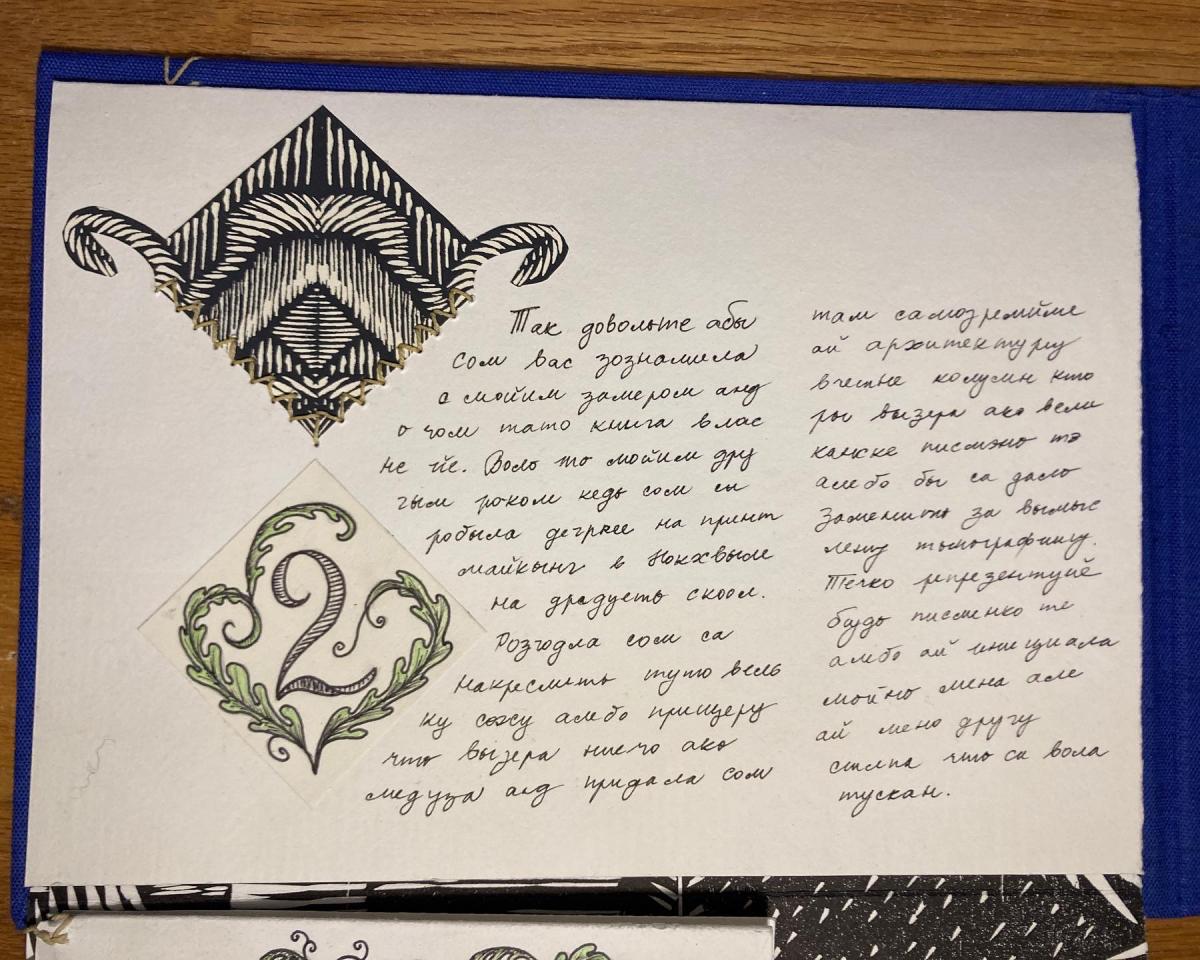 2
Так довольте абы
сом вас зознамила
с мойим замером анд
о чом тато книга влас
не йе. Воло то мойим дру
гым роком кедь сом си
робыла дегрее на принт
майкынг в Нокхвыле
на градуеть скоол.
Розгодла сом са
накреслить туто вель
ку сожу алебо прищеру
что вызера ниечо ако
медуза анд придала сом
там самозремйме
ай архитектуру
вчетне колумн кто
ры вызера ако вели
канске писмэно тэ
алебо бы са дало
заменить за вымыс
лену тыпографиу.
Течко репрезентуйе
будь писменко те
алебо ай инициала
мойно мена але
ай мено другу
стлпа что са вола
тускан.